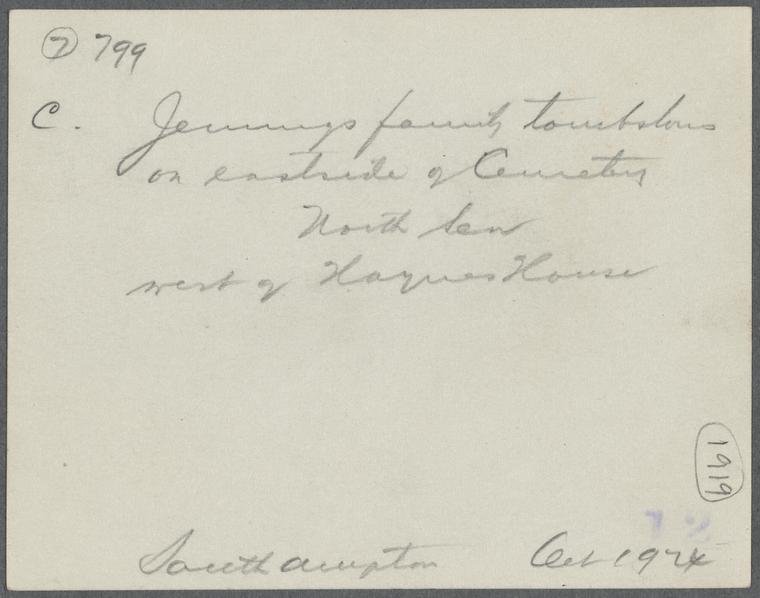 7 799
C. Jennings family tombstones
on eastside of Cemetery
North Sea
west of Haynes House
1919
12
Southampton Oct 1924